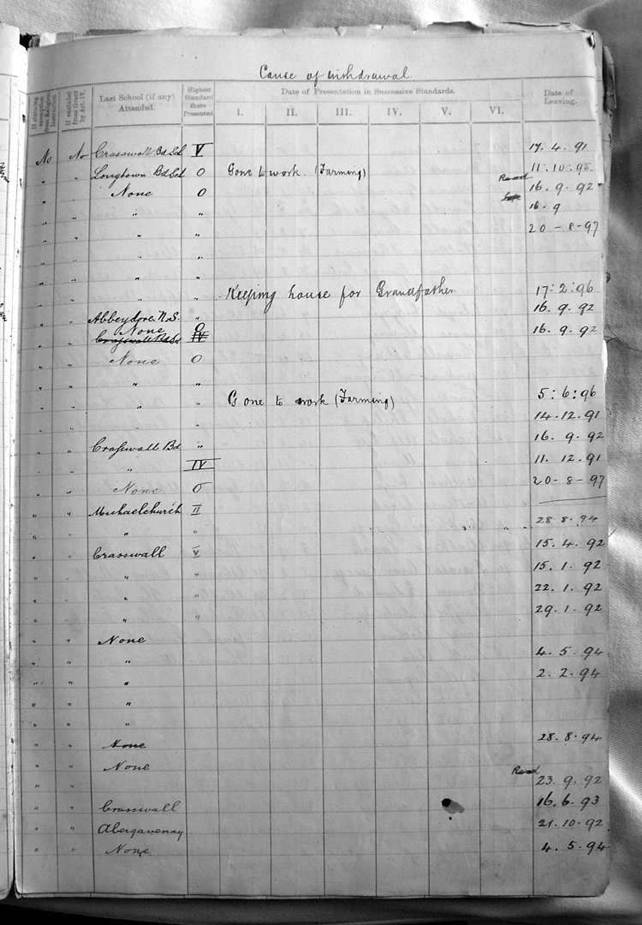 Cause of withdrawal
Last School (if any) Attended.
Highest Standard there Presented
Date of Presentation in Successive Standards.
I. II. III. IV. V. VI.
Date of Leaving.
No No Crasswall Bd Scl V 17. 4. 91
" " Longtown Bd Scl O Gone to work (Farming) 11. 10. 95
" " None O Read 16. 9. 92
" " " " 16. 9
" " " " 20 - 8 - 97
" " " "
" " " "
" " " " Keeping house for Grandfather 17: 2: 96
" " Abbeydore N.S. " 16. 9. 92
" " None O 16. 9. 92
Crasswall Bd Sc IV
" " None O
" " " "
" " " " Gone to work (Farming) 5: 6: 96
" " " " 14. 12. 91
" " Crasswall Bd " 16. 9. 92
" " " IV 11. 12. 91
" " None O 20 - 8 - 97
" " Michaelchurch II
" " " " 28 8. 94
" " Crasswall V 15. 4. 92
" " " " 15. 1. 92
" " " " 22. 1. 92
" " " " 29. 1. 92
" " None
" " " 4. 5. 94
" " " 2. 2. 94
" " "
" " "
" " None 28. 8. 94
" " None Read
" " 23. 9. 92
" " Crasswall 16. 6. 93
" " Abergavenny 21. 10. 92
" " None 4. 5. 94